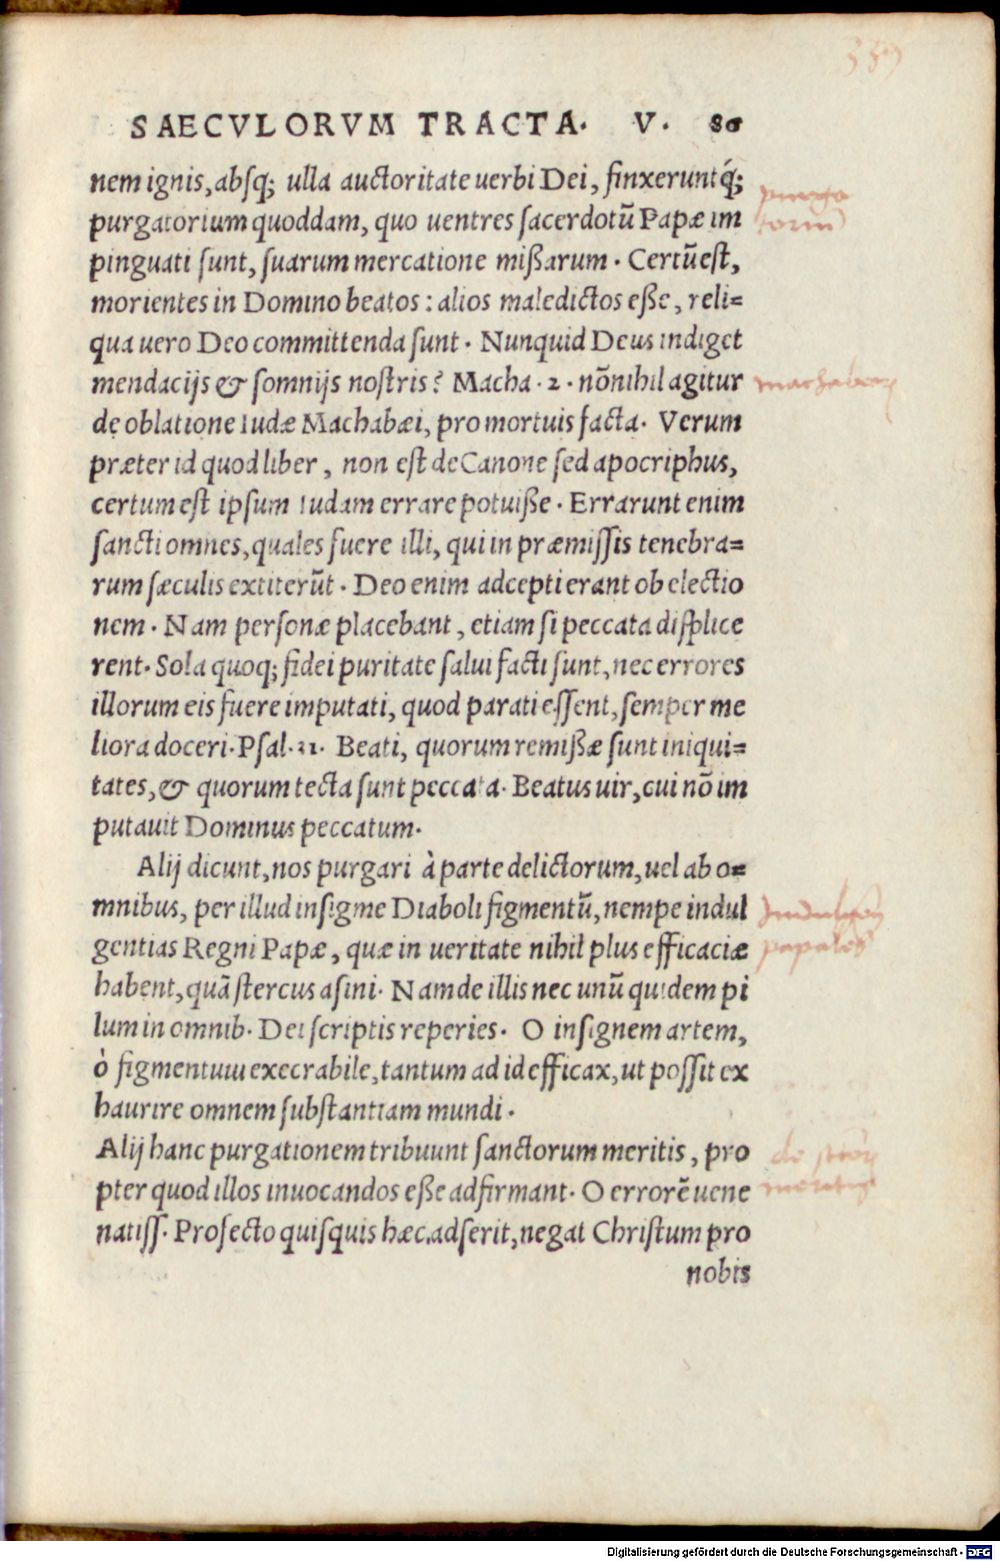 SAECVLORVM TRACTA. V. 80
nem ignis, absq; ulla auctoritate uerbi Dei, finxeruntq́;
purgatorium quoddam, quo uentres sacerdotũ Papæ im
pinguati sunt, suarum mercatione mißarum. Certũ est,
morientes in Domino beatos: alios maledictos eße, reli=
qua uero Deo committenda sunt. Nunquid Deus indiget
mendacijs & somnijs nostris? Macha. 2. nõnihil agitur
de oblatione Iudæ Machabæi, pro mortuis facta. Verum
præter id quod liber, non est de Canone sed apocriphus,
certum est ipsum Iudam errare potuiße. Errarunt enim
sancti omnes, quales fuere illi, qui in præmissis tenebra=
rum sæculis extiterũt. Deo enim adcepti erant ob electio
nem. Nam personæ placebant, etiam si peccata displice
rent. Sola quoq; fidei puritate salui facti sunt, nec errores
illorum eis fuere imputati, quod parati essent, semper me
liora doceri. Psal. 31. Beati, quorum remißæ sunt iniqui=
tates, & quorum tecta sunt peccata. Beatus uir, cui nõ im
putauit Dominus peccatum.
Alij dicunt, nos purgari à parte delictorum, uel ab o=
mnibus, per illud insigme Diaboli figmentũ, nempe indul
gentias Regni Papæ, quæ in ueritate nihil plus efficaciæ
habent, quã stercus asini. Nam de illis nec unũ quidem pi
lum in omnib. Dei scriptis reperies. O insignem artem,
ò figmentum execrabile, tantum ad id efficax, ut possit ex
haurire omnem substantiam mundi.
Alij hanc purgationem tribuunt sanctorum meritis, pro
pter quod illos inuocandos eße adfirmant. O errorẽ uene
natiss. Profecto quisquis hæc adserit, negat Christum pro
nobis
purga
toriũ
papales
Digitalisierung gefördert durch die Deutsche Forschungsgemeinschaft - DFG